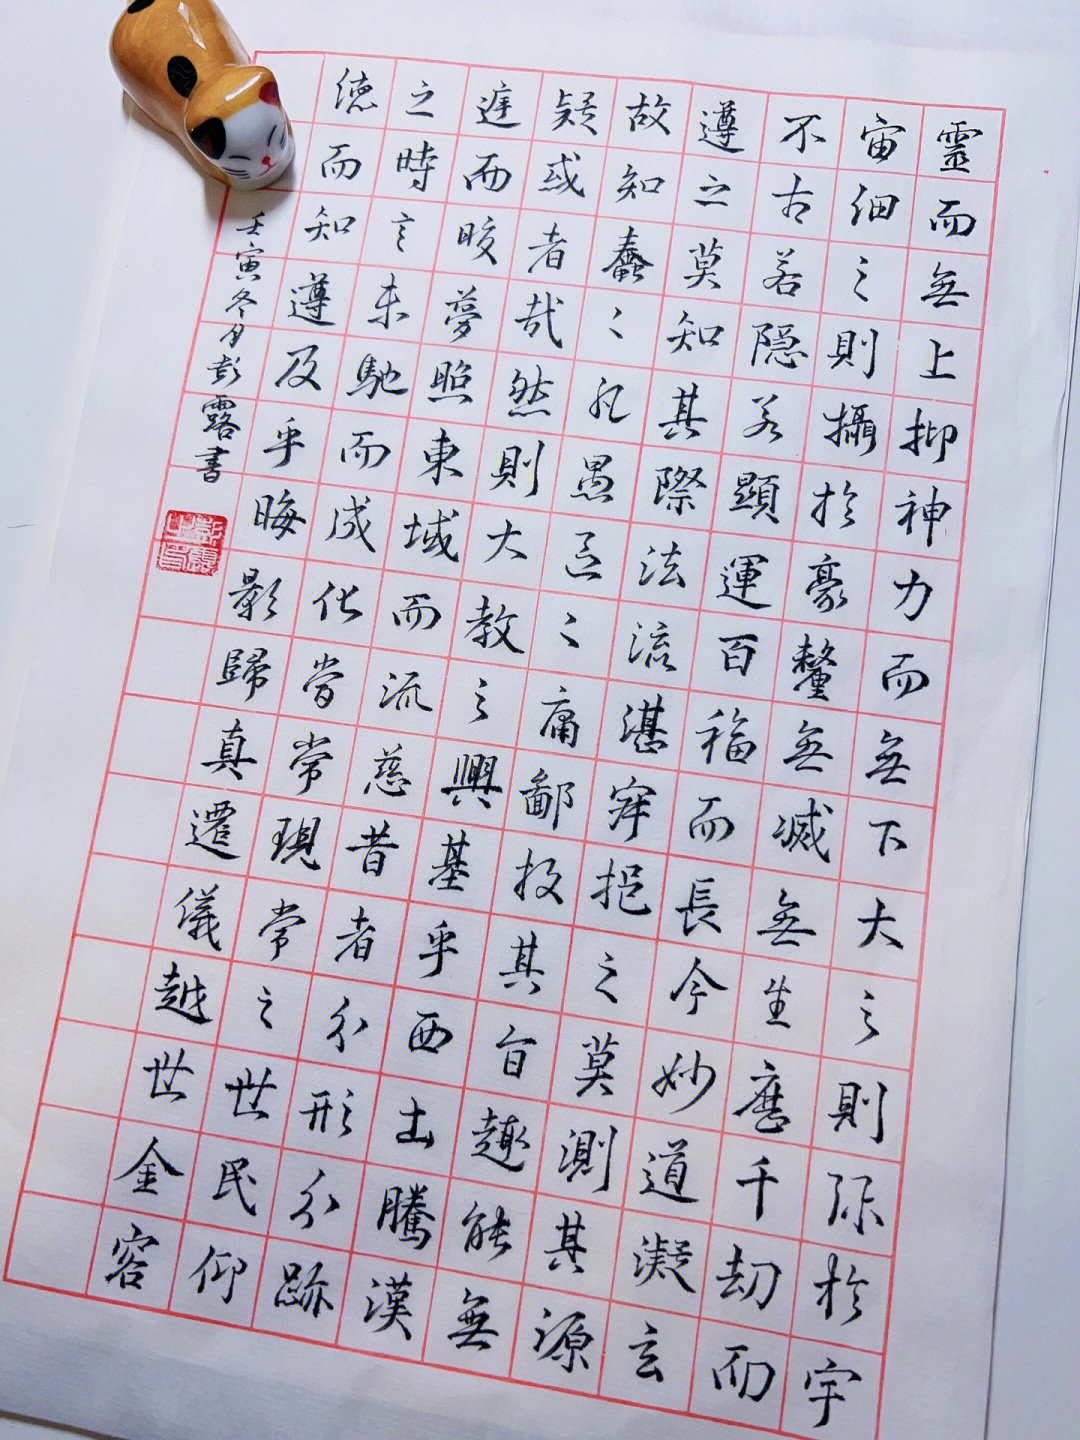 靈而無上抑神力而無下大之則弥於宇
宙細之則攝於豪釐無滅無生歷千劫而
不古若隱若顯運百福而長今妙道凝玄
遵之莫知其際法流湛寂挹之莫測其源
故知蠢〻凡愚區〻庸鄙投其旨趣能無
疑或者哉然則大教之興基乎西土騰漢
庭而皎夢照東域而流慈昔者分形分跡
之時言未馳而成化當常現常之世民仰
德而知遵及乎晦影歸真遷儀越世金容
壬寅冬月彭露書
彭露之印